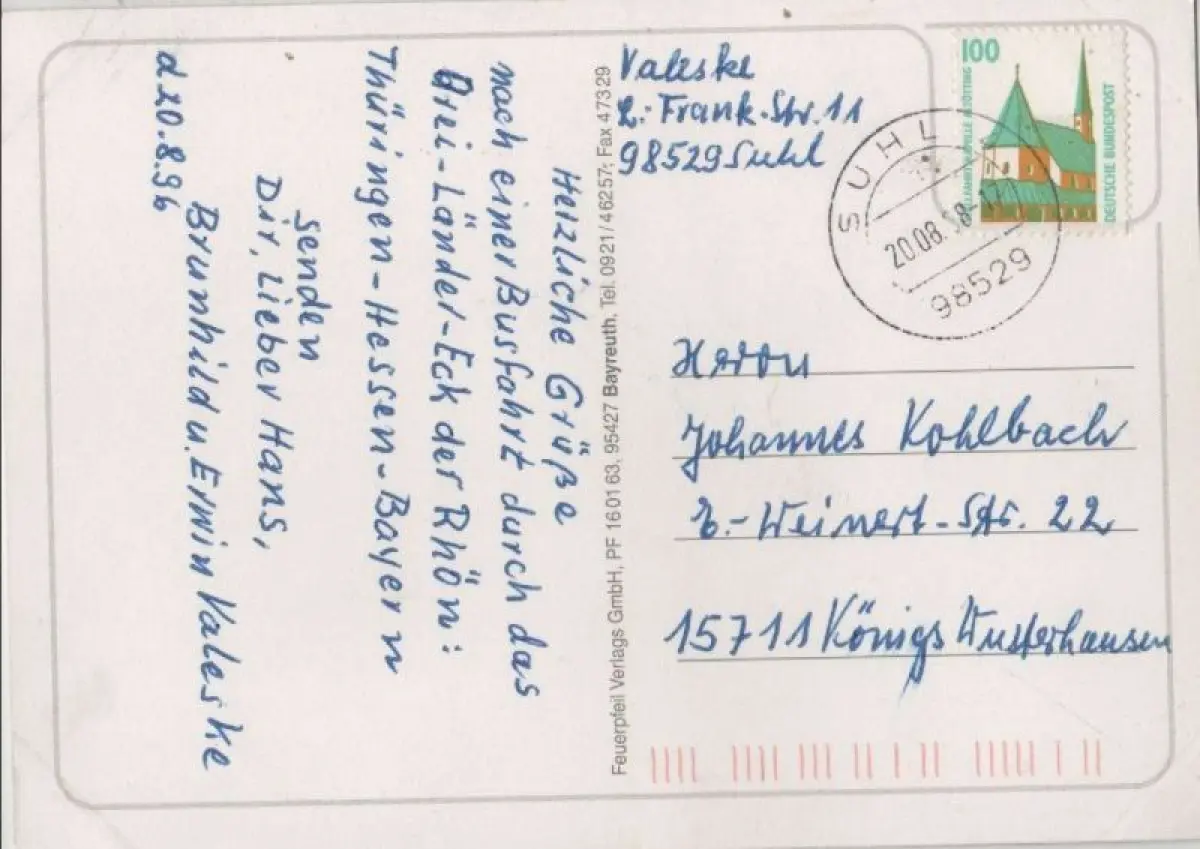 Herzliche Grüße
nach einer Busfahrt durch das
Drei-Länder-Eck der Rhön:
Thüringen-Hessen-Bayern
senden
Dir, Lieber Hans,
Brunhild u. Erwin Valeske
d 20.8.96
Feuerpfeil Verlags GmbH, PF 16 01 63, 95427 Bayreuth, Tel. 0921/46257; Fax 47329
Valeske
Frank-Str. 11
98529 Suhl
100
ALTÖTTING
DEUTSCHE BUNDESPOST
SUHL
20.08.
98529
Herrn
Johannes Kohlbach
E.-Weinert-Str. 22
15711 Königs Wusterhausen